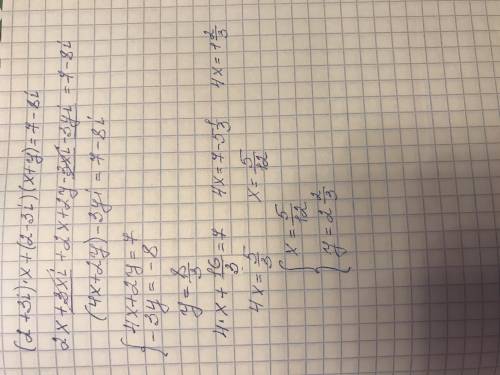 (2+3i)·x+(2-3i)(x+y)=7-8i
2x+3xi+2x+2y-3xi-3yi=7-8i
(4x+2y)-3yi=7-8i
{4x+2y=7
{-3y=-8
y=8/3
4·x+16/3=7 4x=7-5 1/3 4x=1 2/3
4x=5/3 x=5/12
{x=5/12
{y=2 2/3